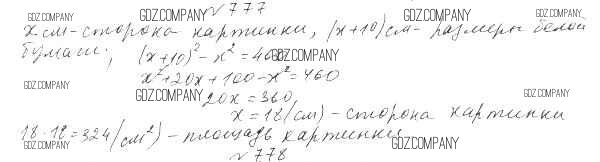 GDZ.COMPANY № 777 GDZ.COMPANY GDZ.COMPANY
x см - сторона картинки, (x+10) см - размеры белой
бумаги; (x+10)² - x² = 460 GDZ.COMPANY
GDZ.COMPANY x² + 20x + 100 - x² = 460
GDZ.COMPANY 20x = 360 GDZ.COMPANY
x = 18 (см) - сторона картинки
18 · 18 = 324 (см²) - площадь картинки
GDZ.COMPANY № 778 GDZ.COMPANY GDZ.COMPANY